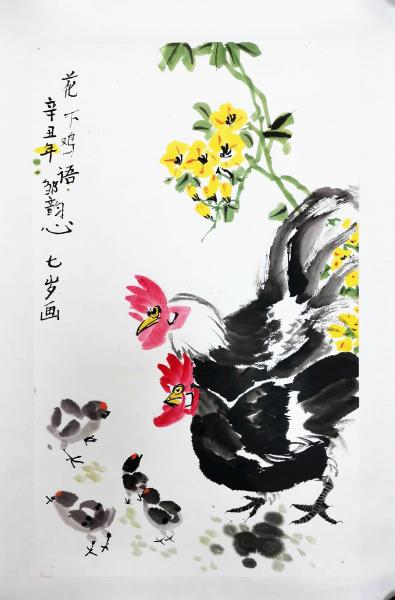 花下鸡语
辛丑年邹韵心七岁画